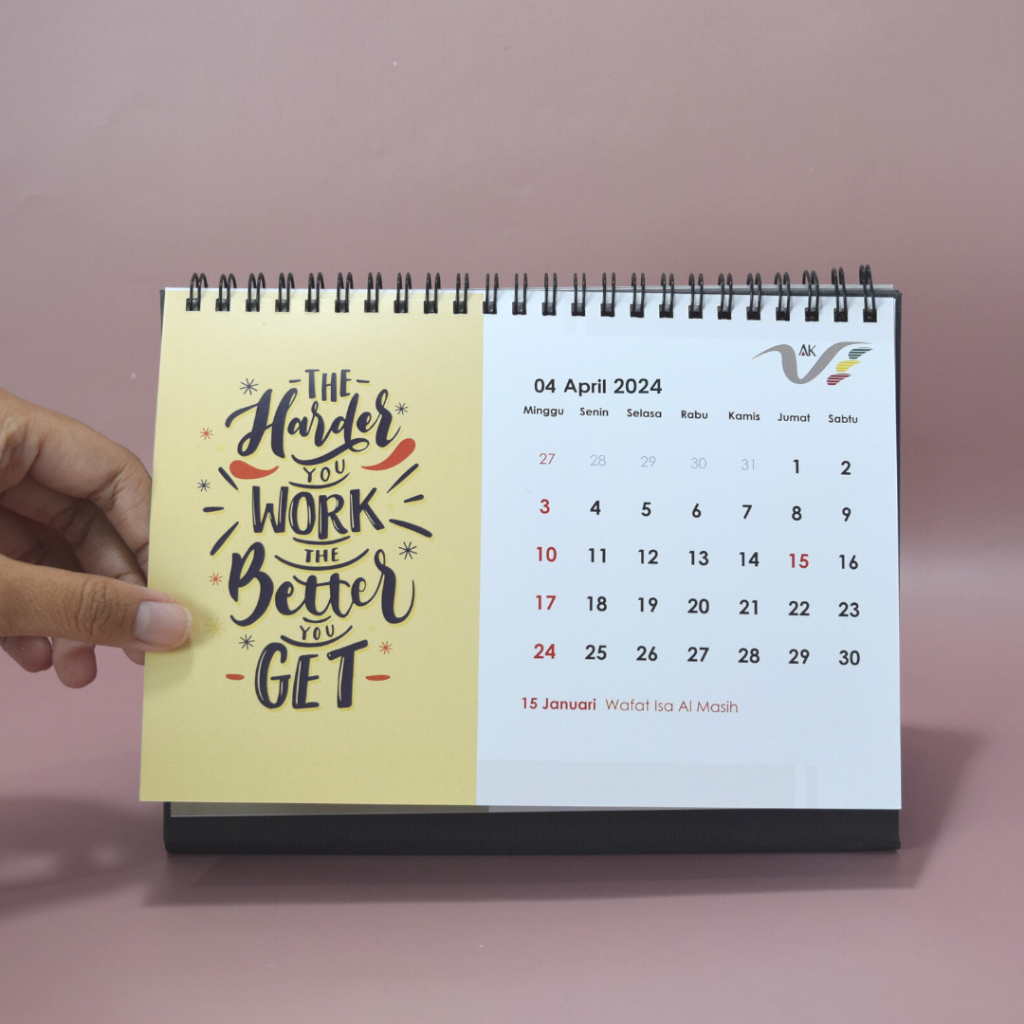 THE
Harder
YOU
WORK
THE
Better
YOU
GET
AK
04 April 2024
Minggu Senin Selasa Rabu Kamis Jumat Sabtu
27 28 29 30 31 1 2
3 4 5 6 7 8 9
10 11 12 13 14 15 16
17 18 19 20 21 22 23
24 25 26 27 28 29 30
15 Januari Wafat Isa Al Masih